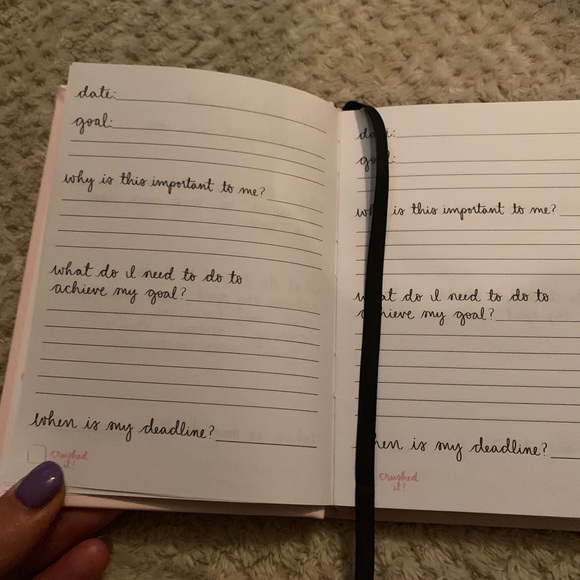 date:
goal:
why is this important to me?
what do I need to do to
achieve my goal?
when is my deadline?
crushed
it!
da e:
go l:
wh is this important to me?
w at do I need to do to
a hieve my goal?
hen is my deadline?
crushed
it!